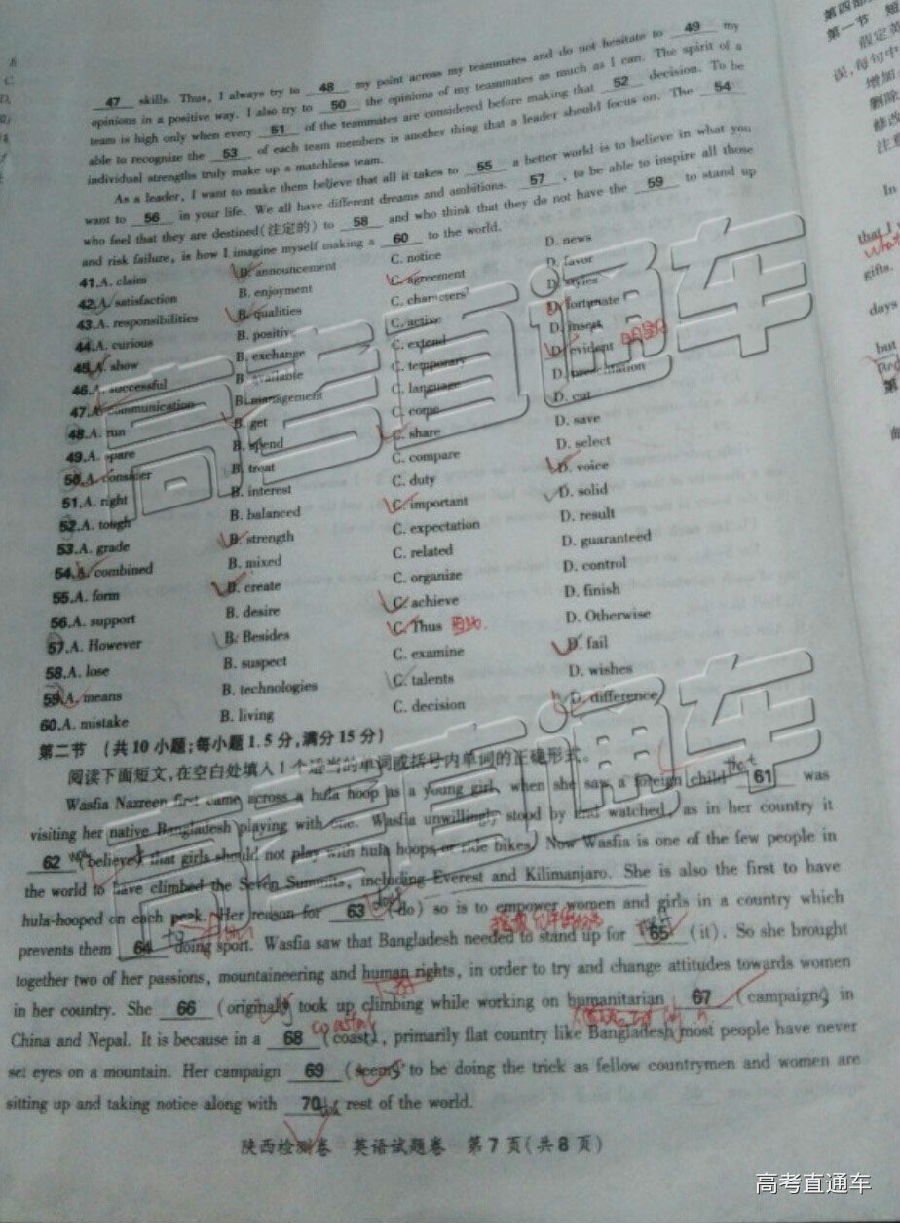 47 skills. Thus, I always try to 48 my point across my teammates and do not hesitate to 49 my
opinions in a positive way. I also try to 50 the opinions of my teammates as much as I can. The spirit of a
team is high only when every 51 of the teammates are considered before making that 52 decision. To be
able to recognize the 53 of each team members is another thing that a leader should focus on. The 54
individual strengths truly make up a matchless team.
As a leader, I want to make them believe that all it takes to 55 a better world is to believe in what you
want to 56 in your life. We all have different dreams and ambitions. 57 , to be able to inspire all those
who feel that they are destined(注定的) to 58 and who think that they do not have the 59 to stand up
and risk failure, is how I imagine myself making a 60 to the world.
41.A. claim B. announcement C. notice D. news
42.A. satisfaction B. enjoyment C. agreement D. favor
43.A. responsibilities B. qualities C. characters D. styles
44.A. curious B. positive C. active D. fortunate
45.A. show B. exchange C. extend D. insert
46.A. successful B. available C. temporary D. evident
47.A. communication B. management C. language D. presentation
48.A. run B. get C. come D. cut
49.A. spare B. spend C. share D. save
50.A. consider B. treat C. compare D. select
51.A. right B. interest C. duty D. voice
52.A. tough B. balanced C. important D. solid
53.A. grade B. strength C. expectation D. result
54.A. combined B. mixed C. related D. guaranteed
55.A. form B. create C. organize D. control
56.A. support B. desire C. achieve D. finish
57.A. However B. Besides C. Thus D. Otherwise
58.A. lose B. suspect C. examine D. fail
59.A. means B. technologies C. talents D. wishes
60.A. mistake B. living C. decision D. difference
第二节 (共10小题;每小题1.5分,满分15分)
阅读下面短文,在空白处填入1个适当的单词或括号内单词的正确形式。
Wasfia Nazreen first came across a hula hoop as a young girl, when she saw a foreign child 61 was
visiting her native Bangladesh playing with one. Wasfia unwillingly stood by and watched, as in her country it
62 (believe) that girls should not play with hula hoops or ride bikes. Now Wasfia is one of the few people in
the world to have climbed the Seven Summits, including Everest and Kilimanjaro. She is also the first to have
hula-hooped on each peak. Her reason for 63 (do) so is to empower women and girls in a country which
prevents them 64 doing sport. Wasfia saw that Bangladesh needed to stand up for 65 (it). So she brought
together two of her passions, mountaineering and human rights, in order to try and change attitudes towards women
in her country. She 66 (original) took up climbing while working on humanitarian 67 (campaign) in
China and Nepal. It is because in a 68 (coast), primarily flat country like Bangladesh most people have never
set eyes on a mountain. Her campaign 69 (seem) to be doing the trick as fellow countrymen and women are
sitting up and taking notice along with 70 rest of the world.
陕西检测卷 英语试题卷 第7页(共8页)
高考直通车
高考直通车
高考直通车
第一节
In
gifts.
days
but